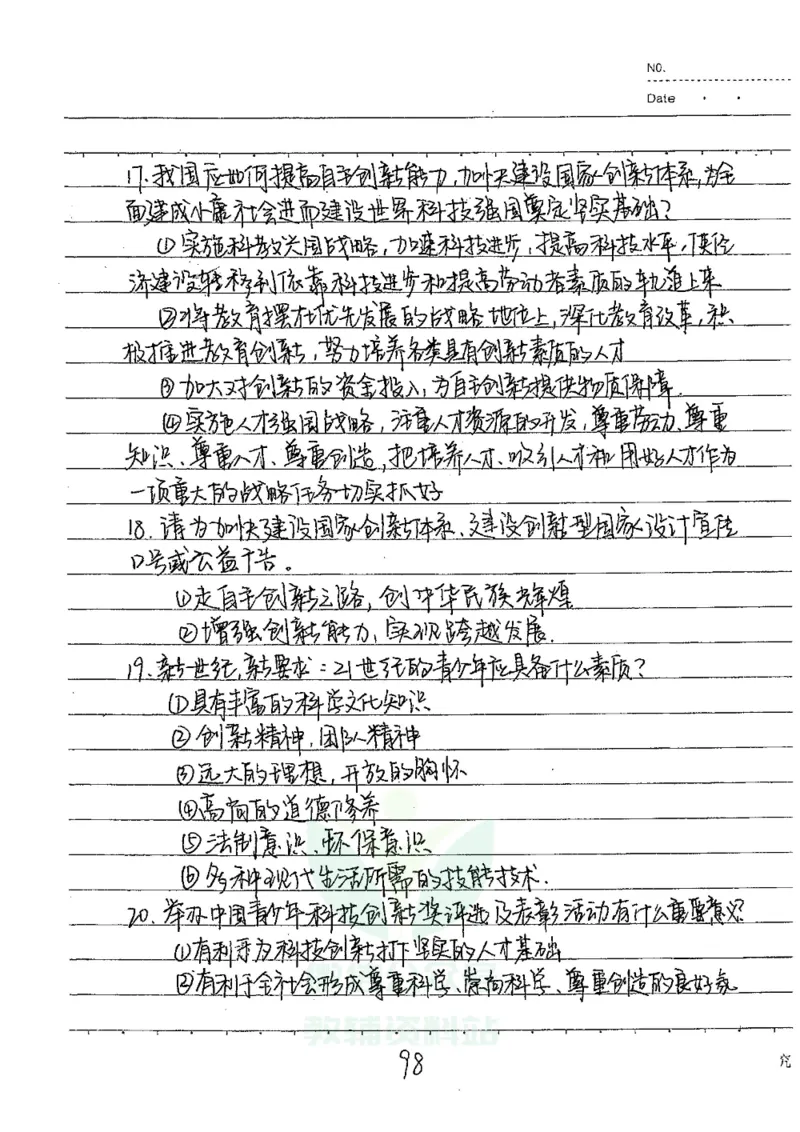 NO.
Date
17.我国应如何提高自主创新能力,加快建设国家创新体系,为全
面建成小康社会进而建设世界科技强国奠定坚实基础?
①实施科教兴国战略,加速科技进步,提高科技水平,使经
济建设转移到依靠科技进步和提高劳动者素质的轨道上来
②将教育摆在优先发展的战略地位上,深化教育改革,积
极推进教育创新,努力培养各类具有创新素质的人才
③加大对创新的资金投入,为自主创新提供物质保障.
④实施人才强国战略,注重人才资源的开发,尊重劳动、尊重
知识、尊重人才、尊重创造,把培养人才、吸引人才和用好人才作为
一项重大的战略任务切实抓好
18.请为加快建设国家创新体系、建设创新型国家设计宣传
口号或公益广告。
①走自主创新之路,创中华民族辉煌
②增强创新能力,实现跨越发展.
19.新世纪,新要求:21世纪的青少年应具备什么素质?
①具有丰富的科学文化知识
②创新精神,团队精神
③远大的理想,开放的胸怀
④高尚的道德修养
⑤法制意识、环保意识
⑥多种现代生活所需的技能技术.
20.举办中国青少年科技创新奖评选及表彰活动有什么重要意义?
①有利于为科技创新打下坚实的人才基础
②有利于全社会形成尊重科学、崇尚科学、尊重创造的良好氛
教辅资料站
98
究